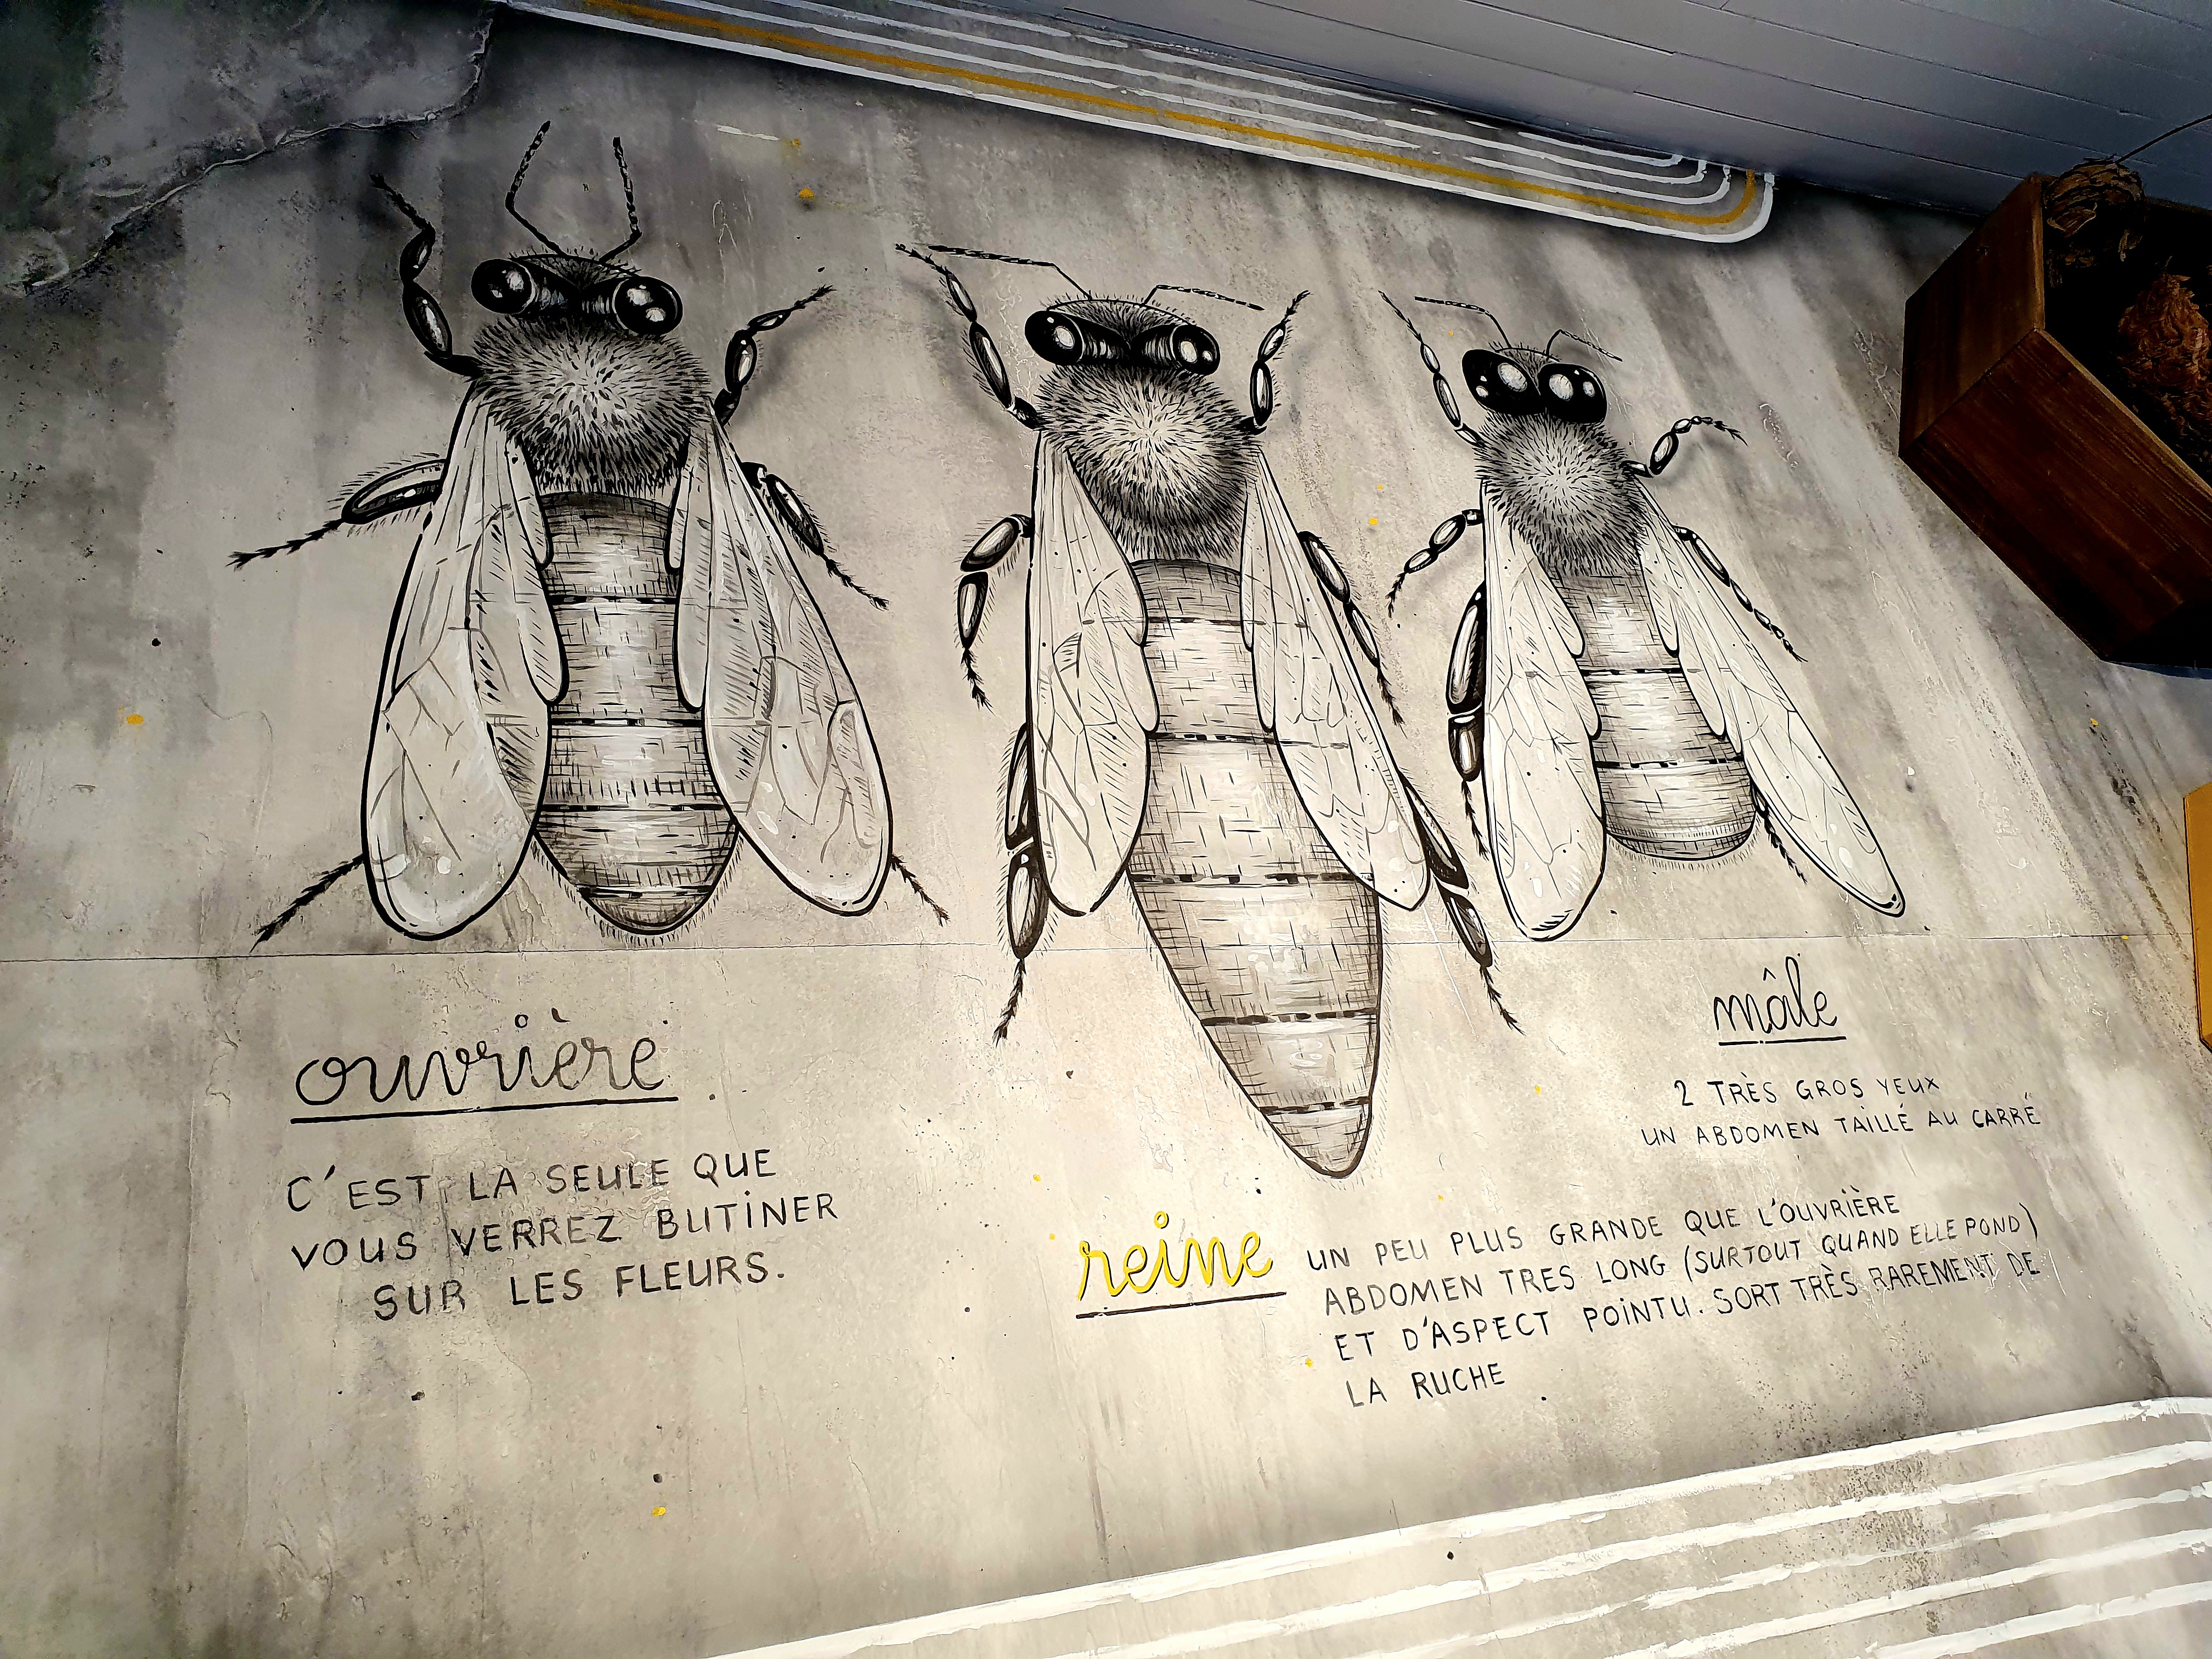 ouvrière
C'EST LA SEULE QUE
VOUS VERREZ BUTINER
SUR LES FLEURS.
mâle
2 TRÈS GROS YEUX
UN ABDOMEN TAILLÉ AU CARRÉ
reine
UN PEU PLUS GRANDE QUE L'OUVRIÈRE
ABDOMEN TRES LONG (SURTOUT QUAND ELLE POND)
ET D'ASPECT POINTU. SORT TRÈS RAREMENT DE
LA RUCHE